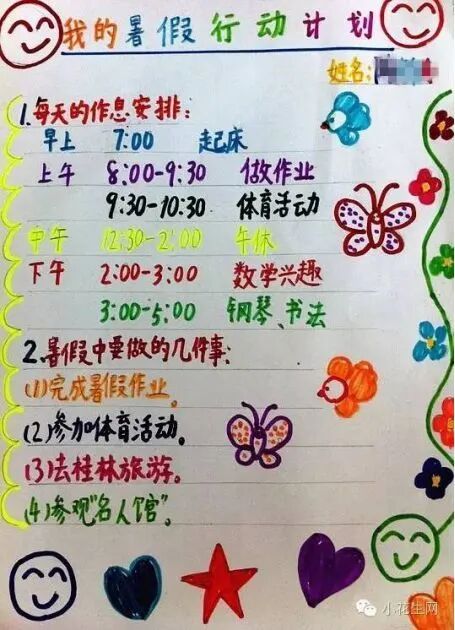 我的暑假行动计划
姓名:
1.每天的作息安排:
早上 7:00 起床
上午 8:00-9:30 做作业
9:30-10:30 体育活动
中午 12:30-2:00 午休
下午 2:00-3:00 数学兴趣
3:00-5:00 钢琴、书法
2.暑假中要做的几件事:
(1)完成暑假作业。
(2)参加体育活动。
(3)去桂林旅游。
(4)参观“名人馆”。
小花生网